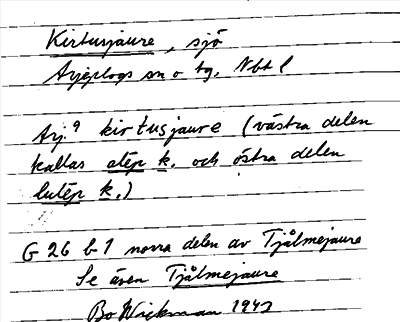 Kirtusjaure, sjö
Arjeplogs sn o tg, Nbt l
Arj⁹ kirtusjaure (västra delen
kallas alēp k. och östra delen
lulēp k.)
G 26 b 1 norra delen av Tjålmejaure
Se även Tjålmejaure
Bo Wickman 1942